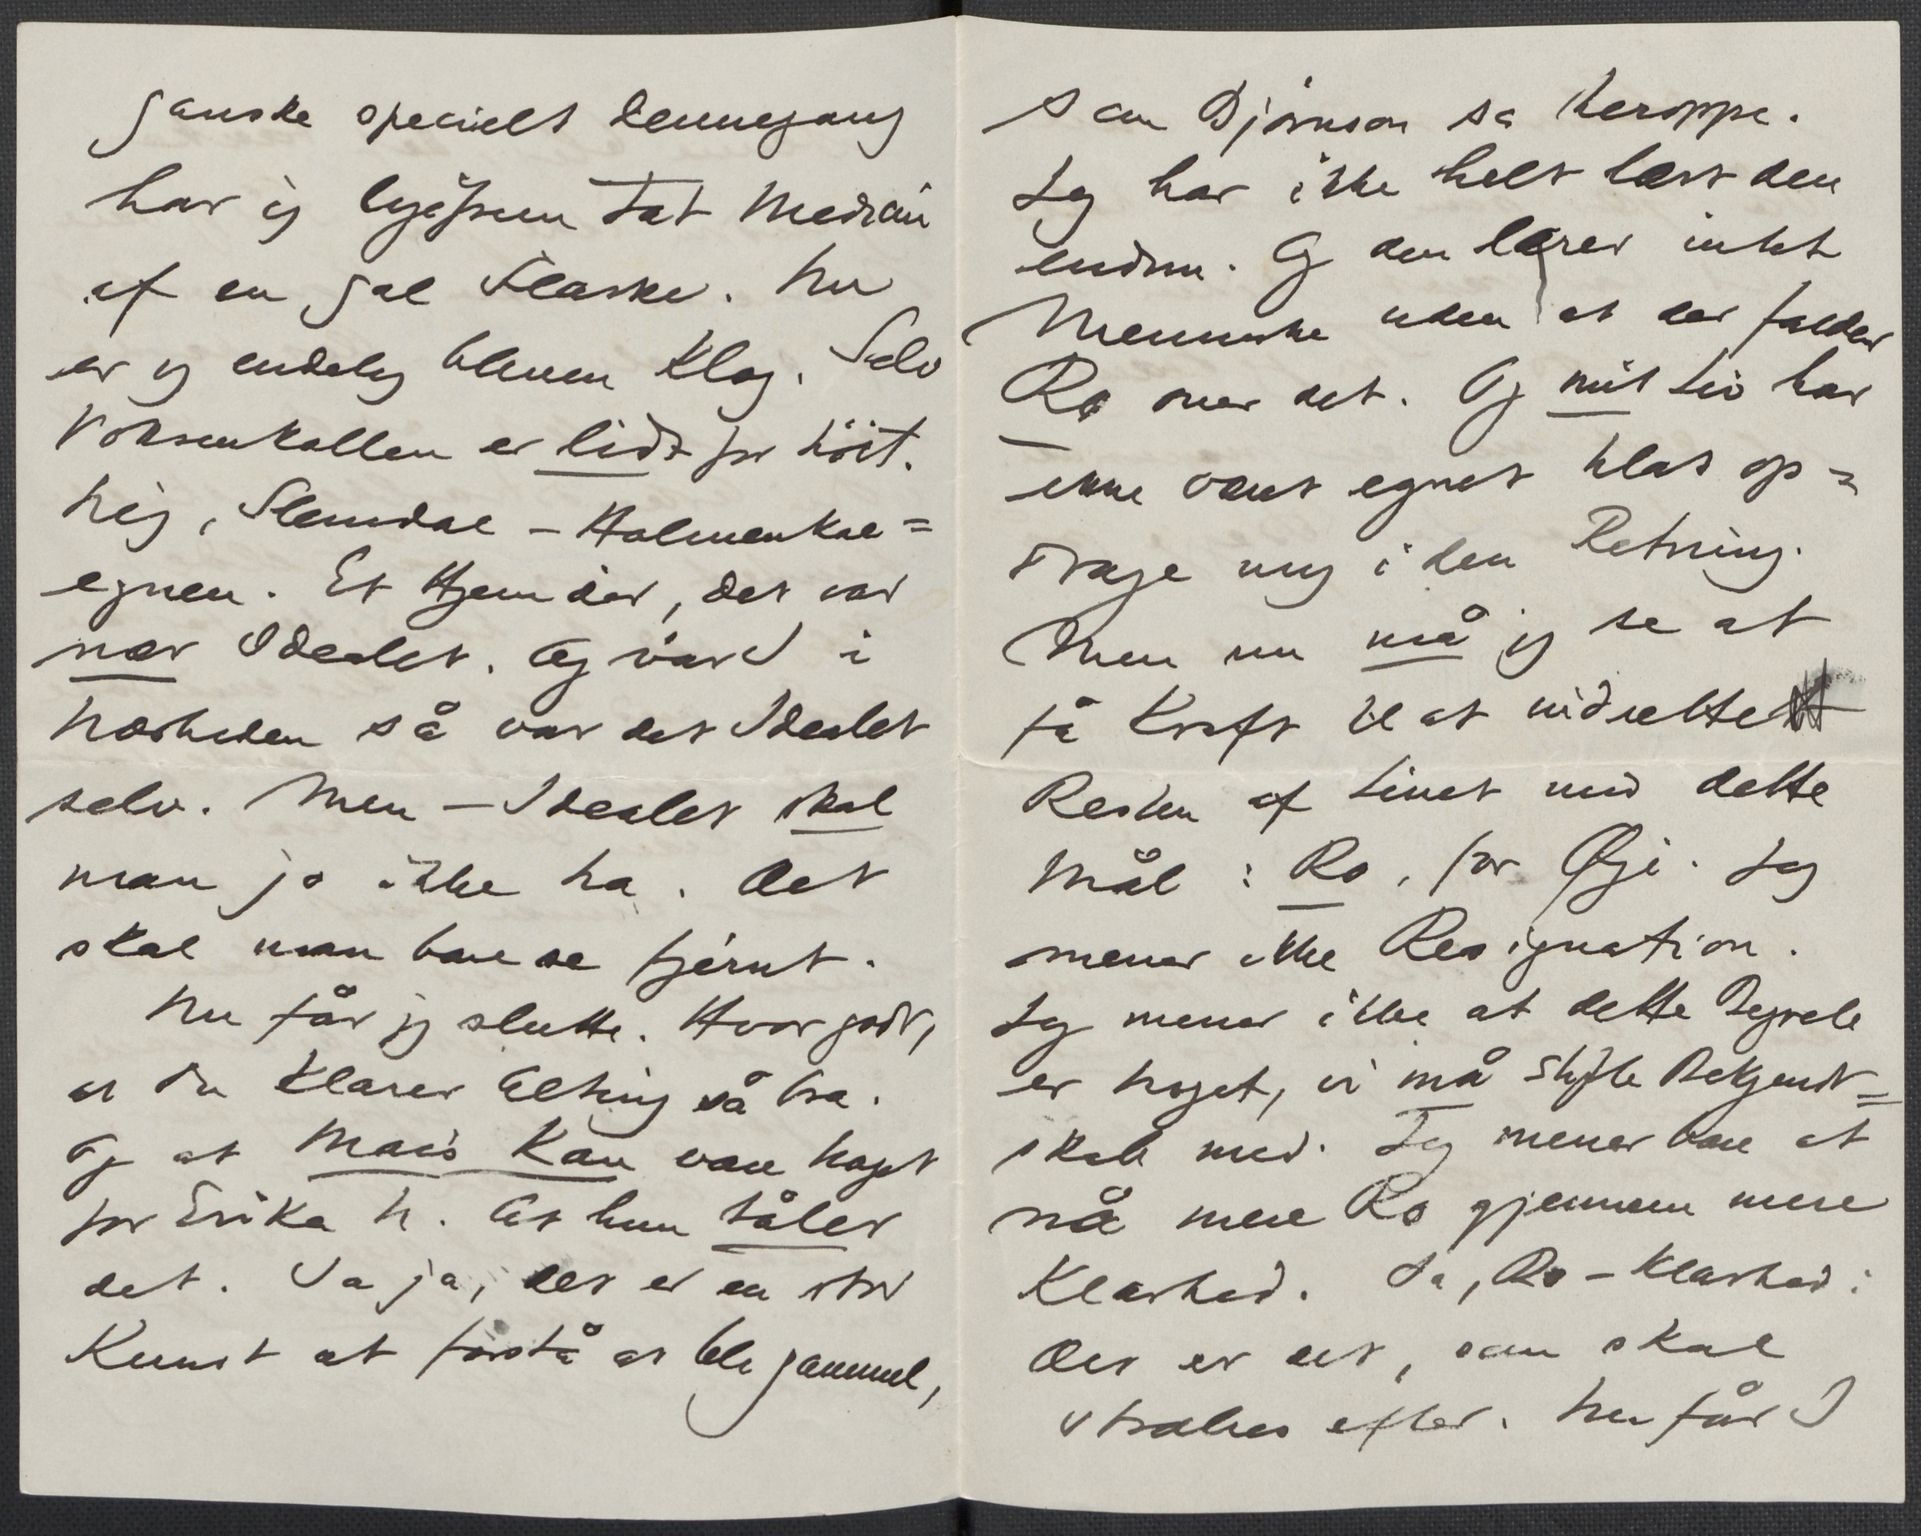 ganske specielt dennegang
har jeg ligesom tat Medicin
af en gal Flaske. Nu
er jeg endelig bleven klog. Selv
Voksenkollen er lidt for höit.
Nej, Slemdal – Holmenkol=
egnen. Et Hjem der, det var
nær Idealet. Og var I i
Nærheden så var det Idealet
selv. Men – Idealet skal
man jo ikke ha. Det
skal man bare se fjernt.
Nu får jeg slutte. Hvor godt,
at du klarer Alting så bra.
Og at Mais kan være noget
for Erika N. At hun tåler
det. Ja ja, det er en stor
Kunst at forstå at bli gammel,
som Björnson sa heroppe.
Jeg har ikke helt lært den
endnu. Og den lærer intet
Menneske uden at der falder
Ro over det. Og mit Liv har
ikke været egnet klat op=
drage mig i den Retning.
Men nu må jeg se at
få Kraft til at indrette
Resten af Livet med dette
Mål: Ro, for Øje. Jeg
mener ikke Resignation.
Jeg mener ikke at dette Degvele
er noget, vi må stifte Bekjendt=
skab med. Jeg mener bare at
nå mere Ro gjennem mere
Klarhed. Ja, Ro – Klarhed:
Det er det, som skal
stræbes efter. Nu får I